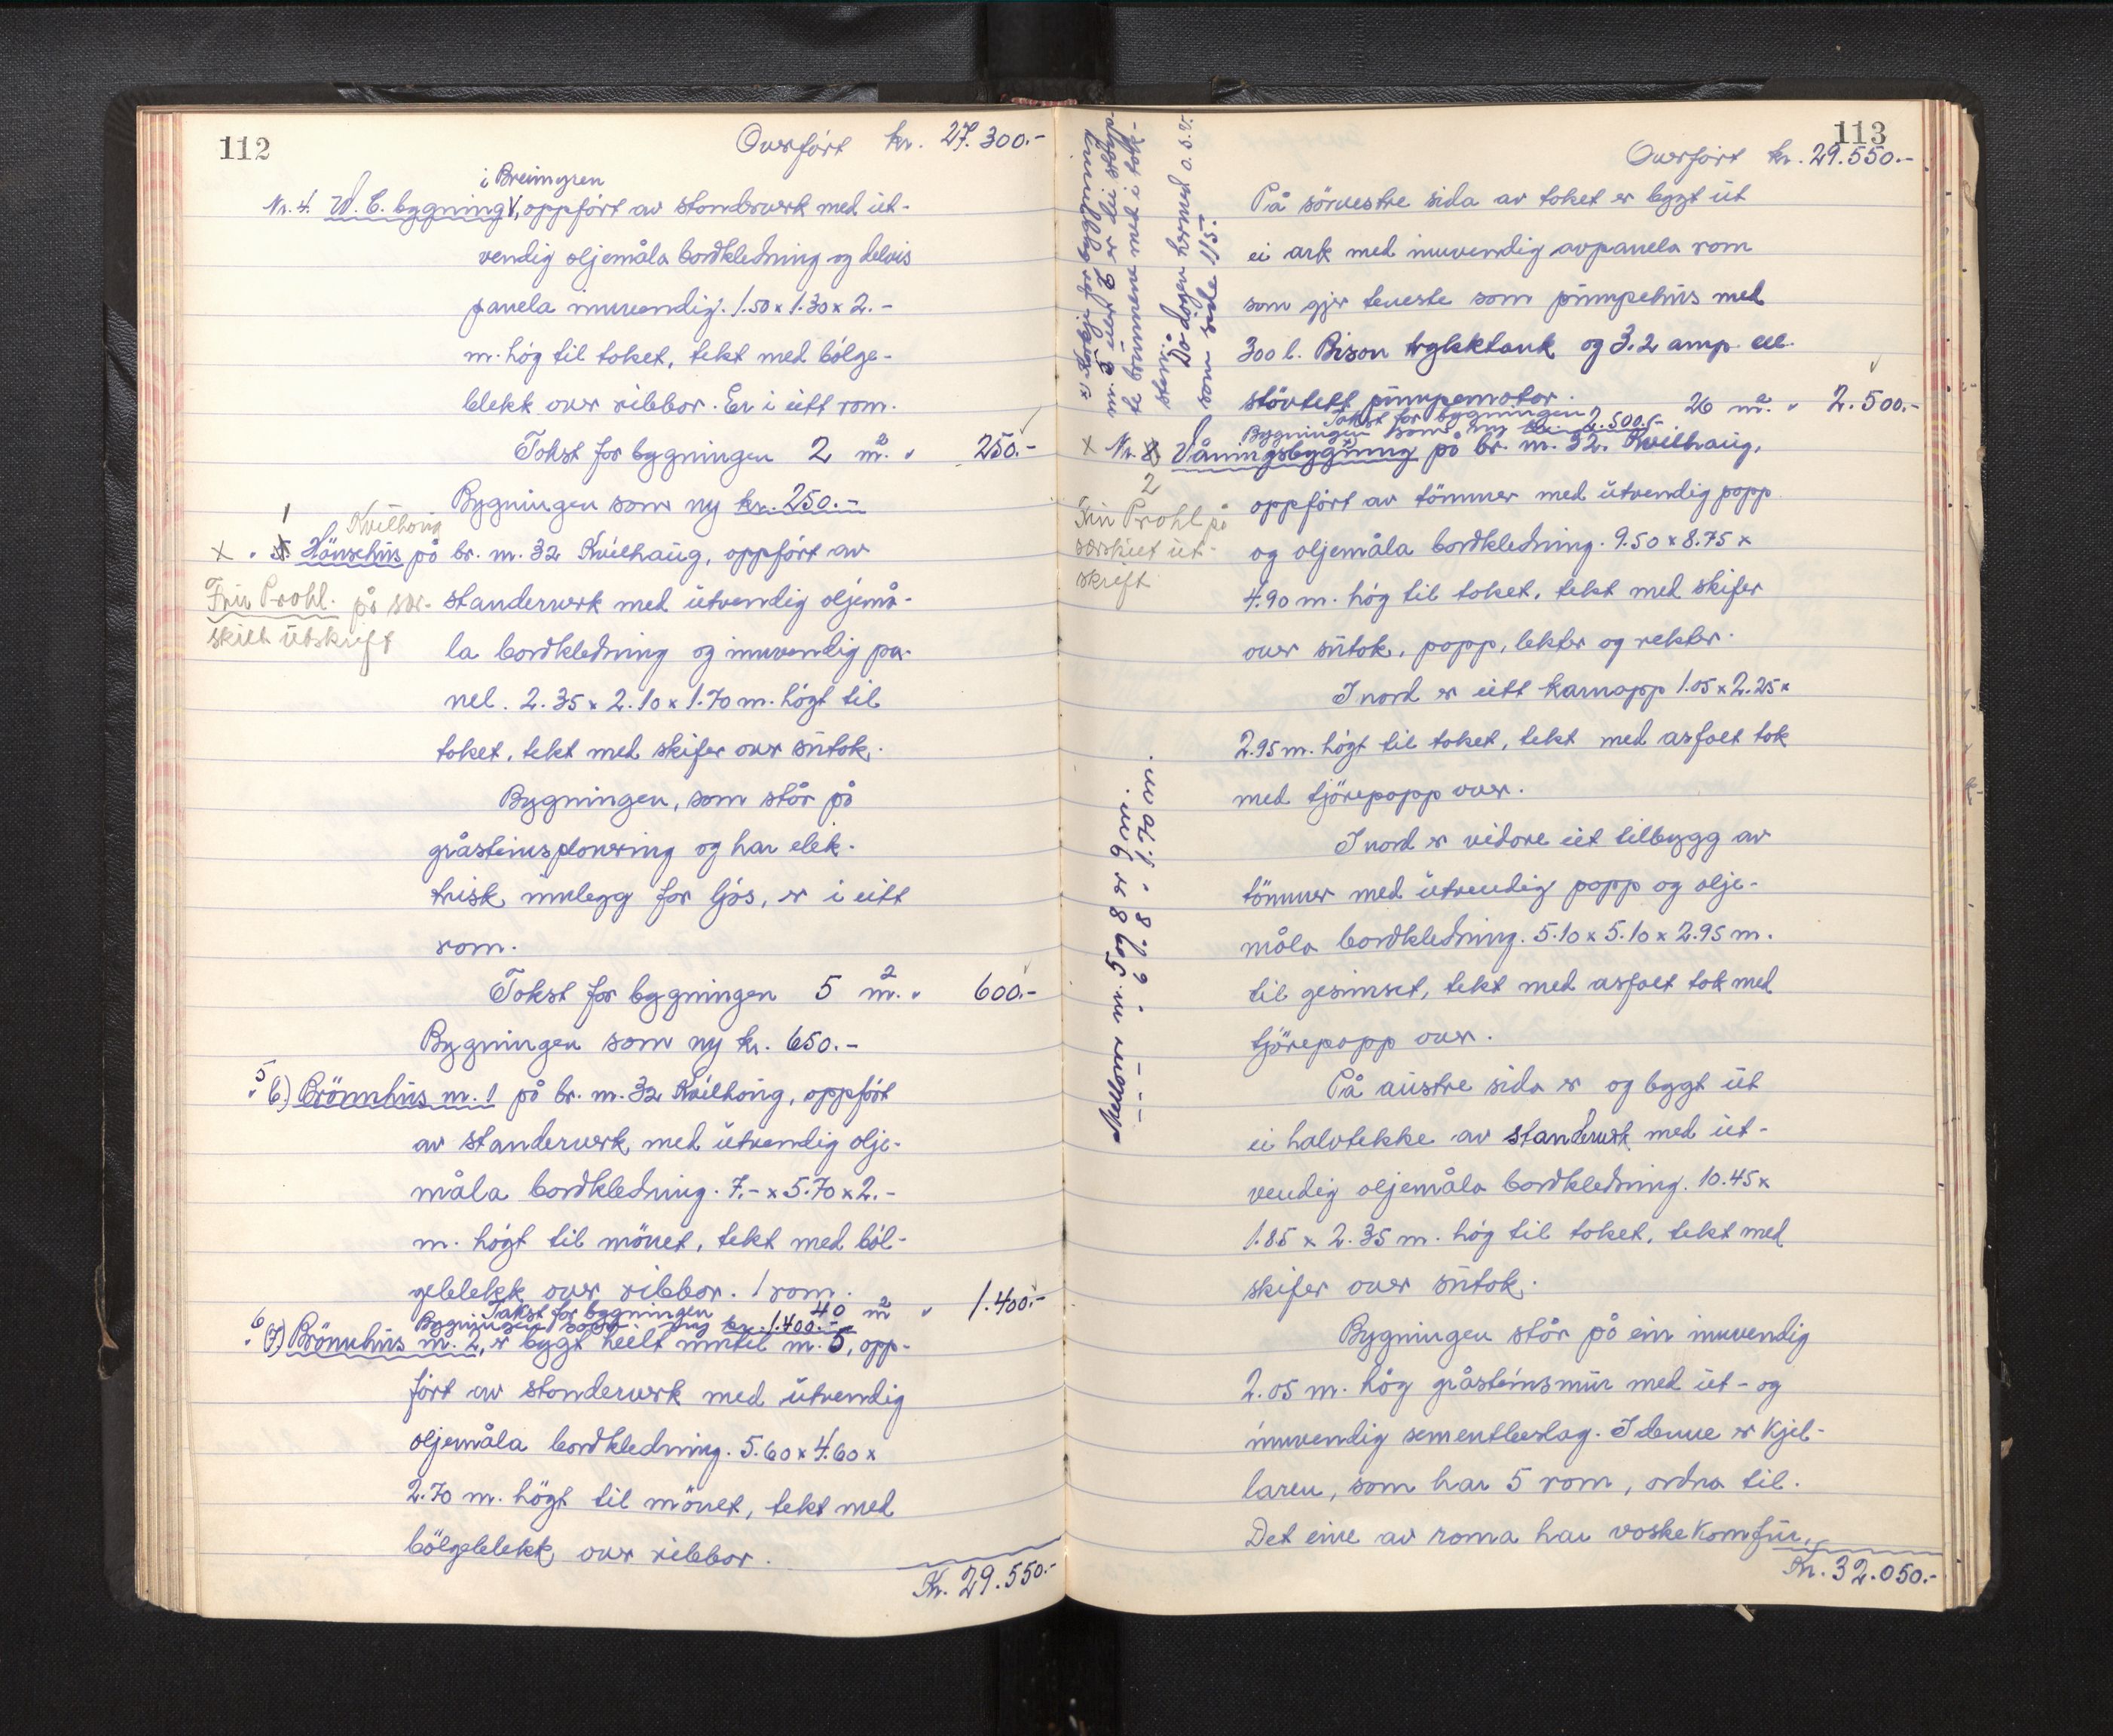 112
Overført kr. 27.300.-
i Breimyren
Nr. 4. W.C. bygning V, oppført av standerverk med ut-
vendig oljemåla bordkledning og delvis
panela innvendig. 1.50 x 1.30 x 2.-
m. høg til taket, tekt med bølge-
blekk over ribbor. Er i eitt rom.
Takst for bygningen 2 m². " 250.-
Bygningen som ny kr. 250.-
1 Kvilhaug
x " 5 Hönsehus på br. nr. 32 Kvilhaug, oppført av
Fru Prohl. på sær-
skilt utskrift
standerverk med utvendig oljemå-
la bordkledning og innvendig pa-
nel. 2.35 x 2.10 x 1.70 m. högt til
taket, tekt med skifer over sutak.
Bygningen, som står på
gråsteinsplanering og har elek-
trisk innlegg for ljós, er i eitt
rom.
Takst for bygningen 5 m². " 600.-
Bygningen som ny kr. 650.-
5
" 6.) Brönnhus nr. 1 på br. nr. 32 Kvilhaug, oppfört
av standerverk med utvendig olje-
måla bordkledning. 7.- x 5.70 x 2.-
m. högt til mönet, tekt med böl-
geblekk over ribbor. 1 rom.
Takst for bygningen 40 m² " 1.400.-
Bygningen som ny kr. 1.400.-
6
" 7.) Brönnhus nr. 2, er bygt heilt inntil nr. 5, opp-
fört av standerverk med utvendig
oljemåla bordkledning. 5.60 x 4.60 x
2.70 m. högt til mönet, tekt med
bölgeblekk over ribbor.
Kr. 29.550.-
113
Overført kr. 29.550.-
nr. 5 eller 6 er dei
te brunnene med i tak-
sten.
som side 115.
Nummer nr. 5 og 8 er 9 m.
- " - 6 " 8 " 1.70 m.
På sörvestre sida av taket er bygt ut
ei ark med innvendig avpanela rom
som gjer teneste som pumpehus med
300 l. Bison trykktank og 3.2 amp. ell.
stövtett pumpemotor. 26 m². " 2.500.-
Takst for bygningen
Bygningen som ny kr. 2.500.-
x Nr. 8 Våningsbygning på br. nr. 32. Kvilhaug,
2
Fru Prohl på
særskilt ut-
skrift
oppfört av tömmer med utvendig papp
og oljemåla bordkledning. 9.50 x 8.75 x
4.90 m. hög til taket, tekt med skifer
over sutak, papp, lekter og rekter.
I nord er eitt karnapp 1.05 x 2.25 x
2.95 m. högt til taket, tekt med asfalt tak
med tjörepapp over.
I nord er vidare eit tilbygg av
tömmer med utvendig papp og olje-
måla bordkledning. 5.10 x 5.10 x 2.95 m.
til gesimset, tekt med asfalt tak med
tjörepapp over.
På austre sida er og bygt ut
ei halvtekke av standerverk med ut-
vendig oljemåla bordkledning. 10.45 x
1.85 x 2.35 m. hög til taket, tekt med
skifer over sutak.
Bygningen står på ein innvendig
2.05 m. hög gråsteinsmur med ut- og
innvendig sementbeslag. I denne er kjel-
laren, som har 5 rom, ordna til.
Det eine av roma har vaskekomfur,
Kr. 32.050.-